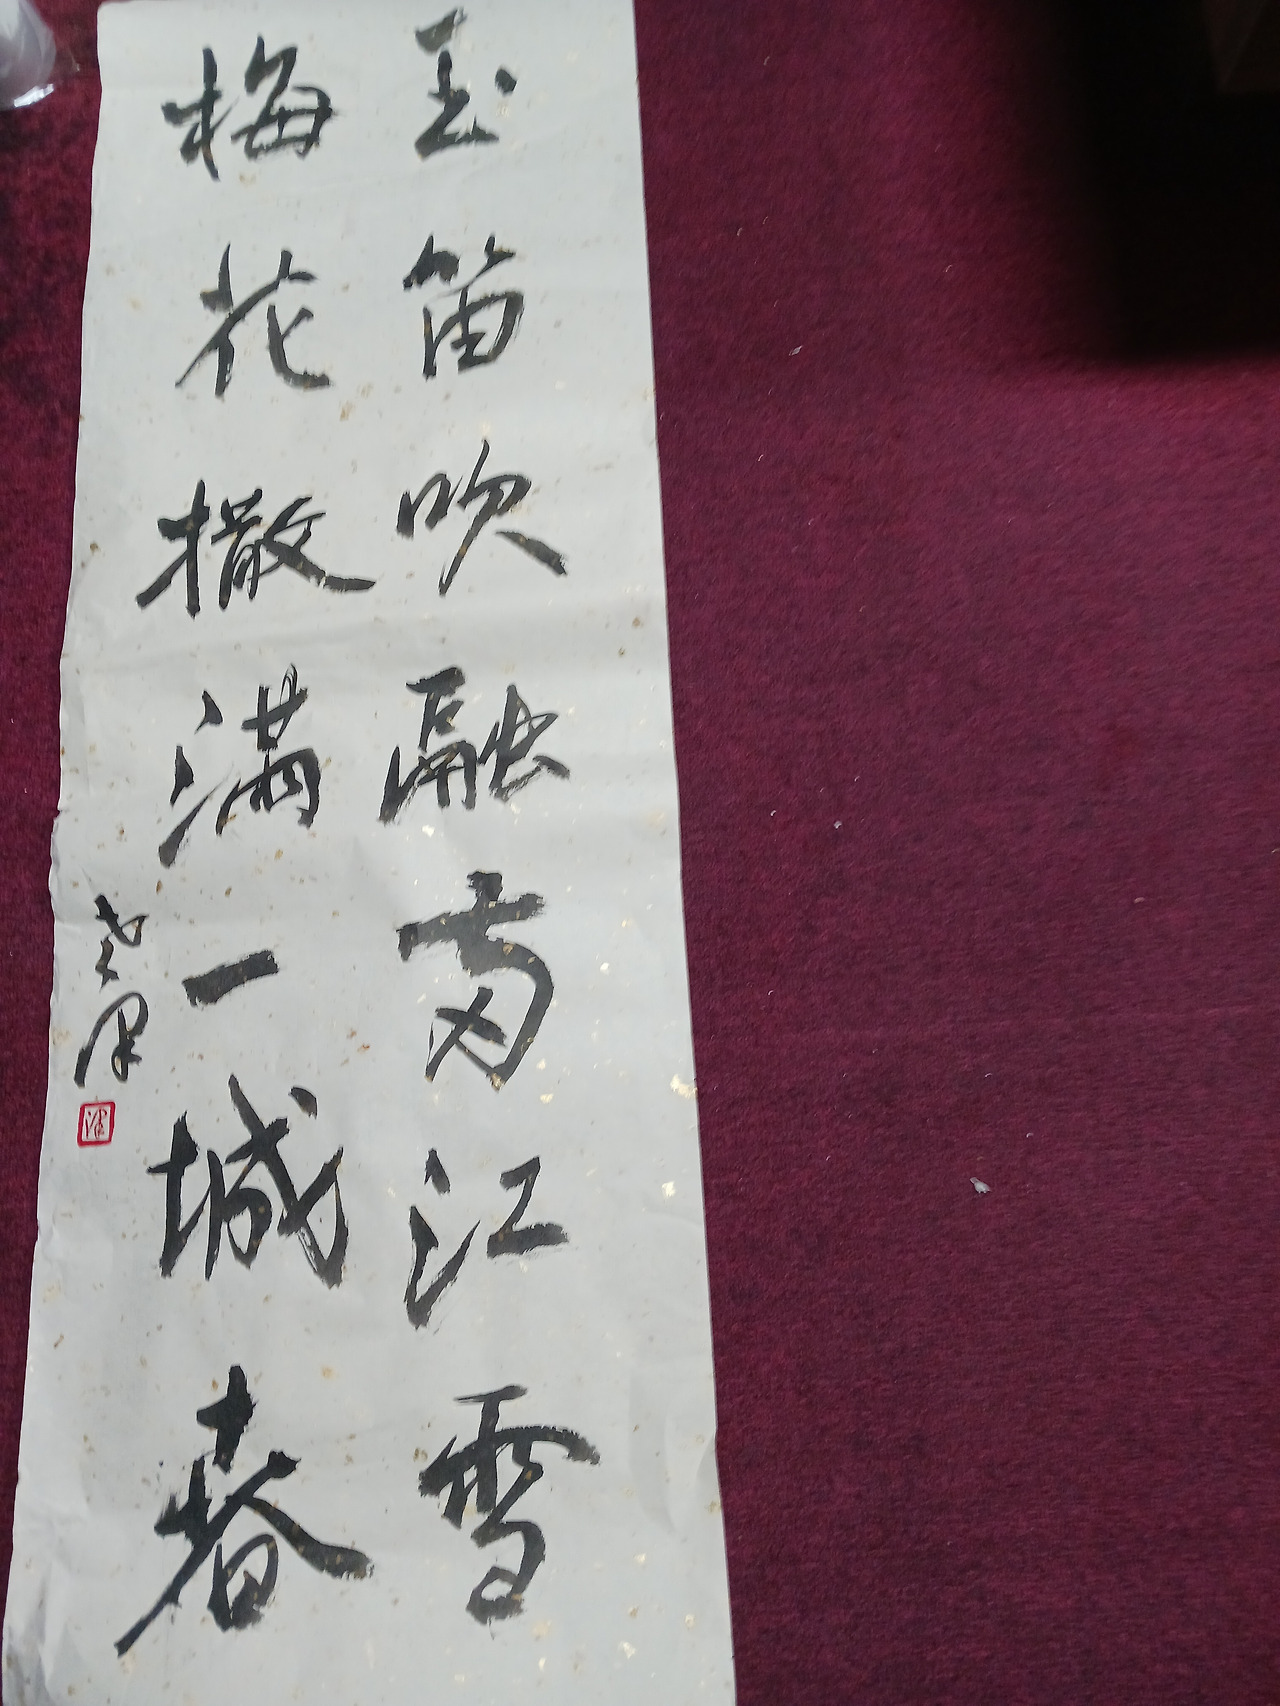 玉笛吹融南江雪
梅花撒满一城春